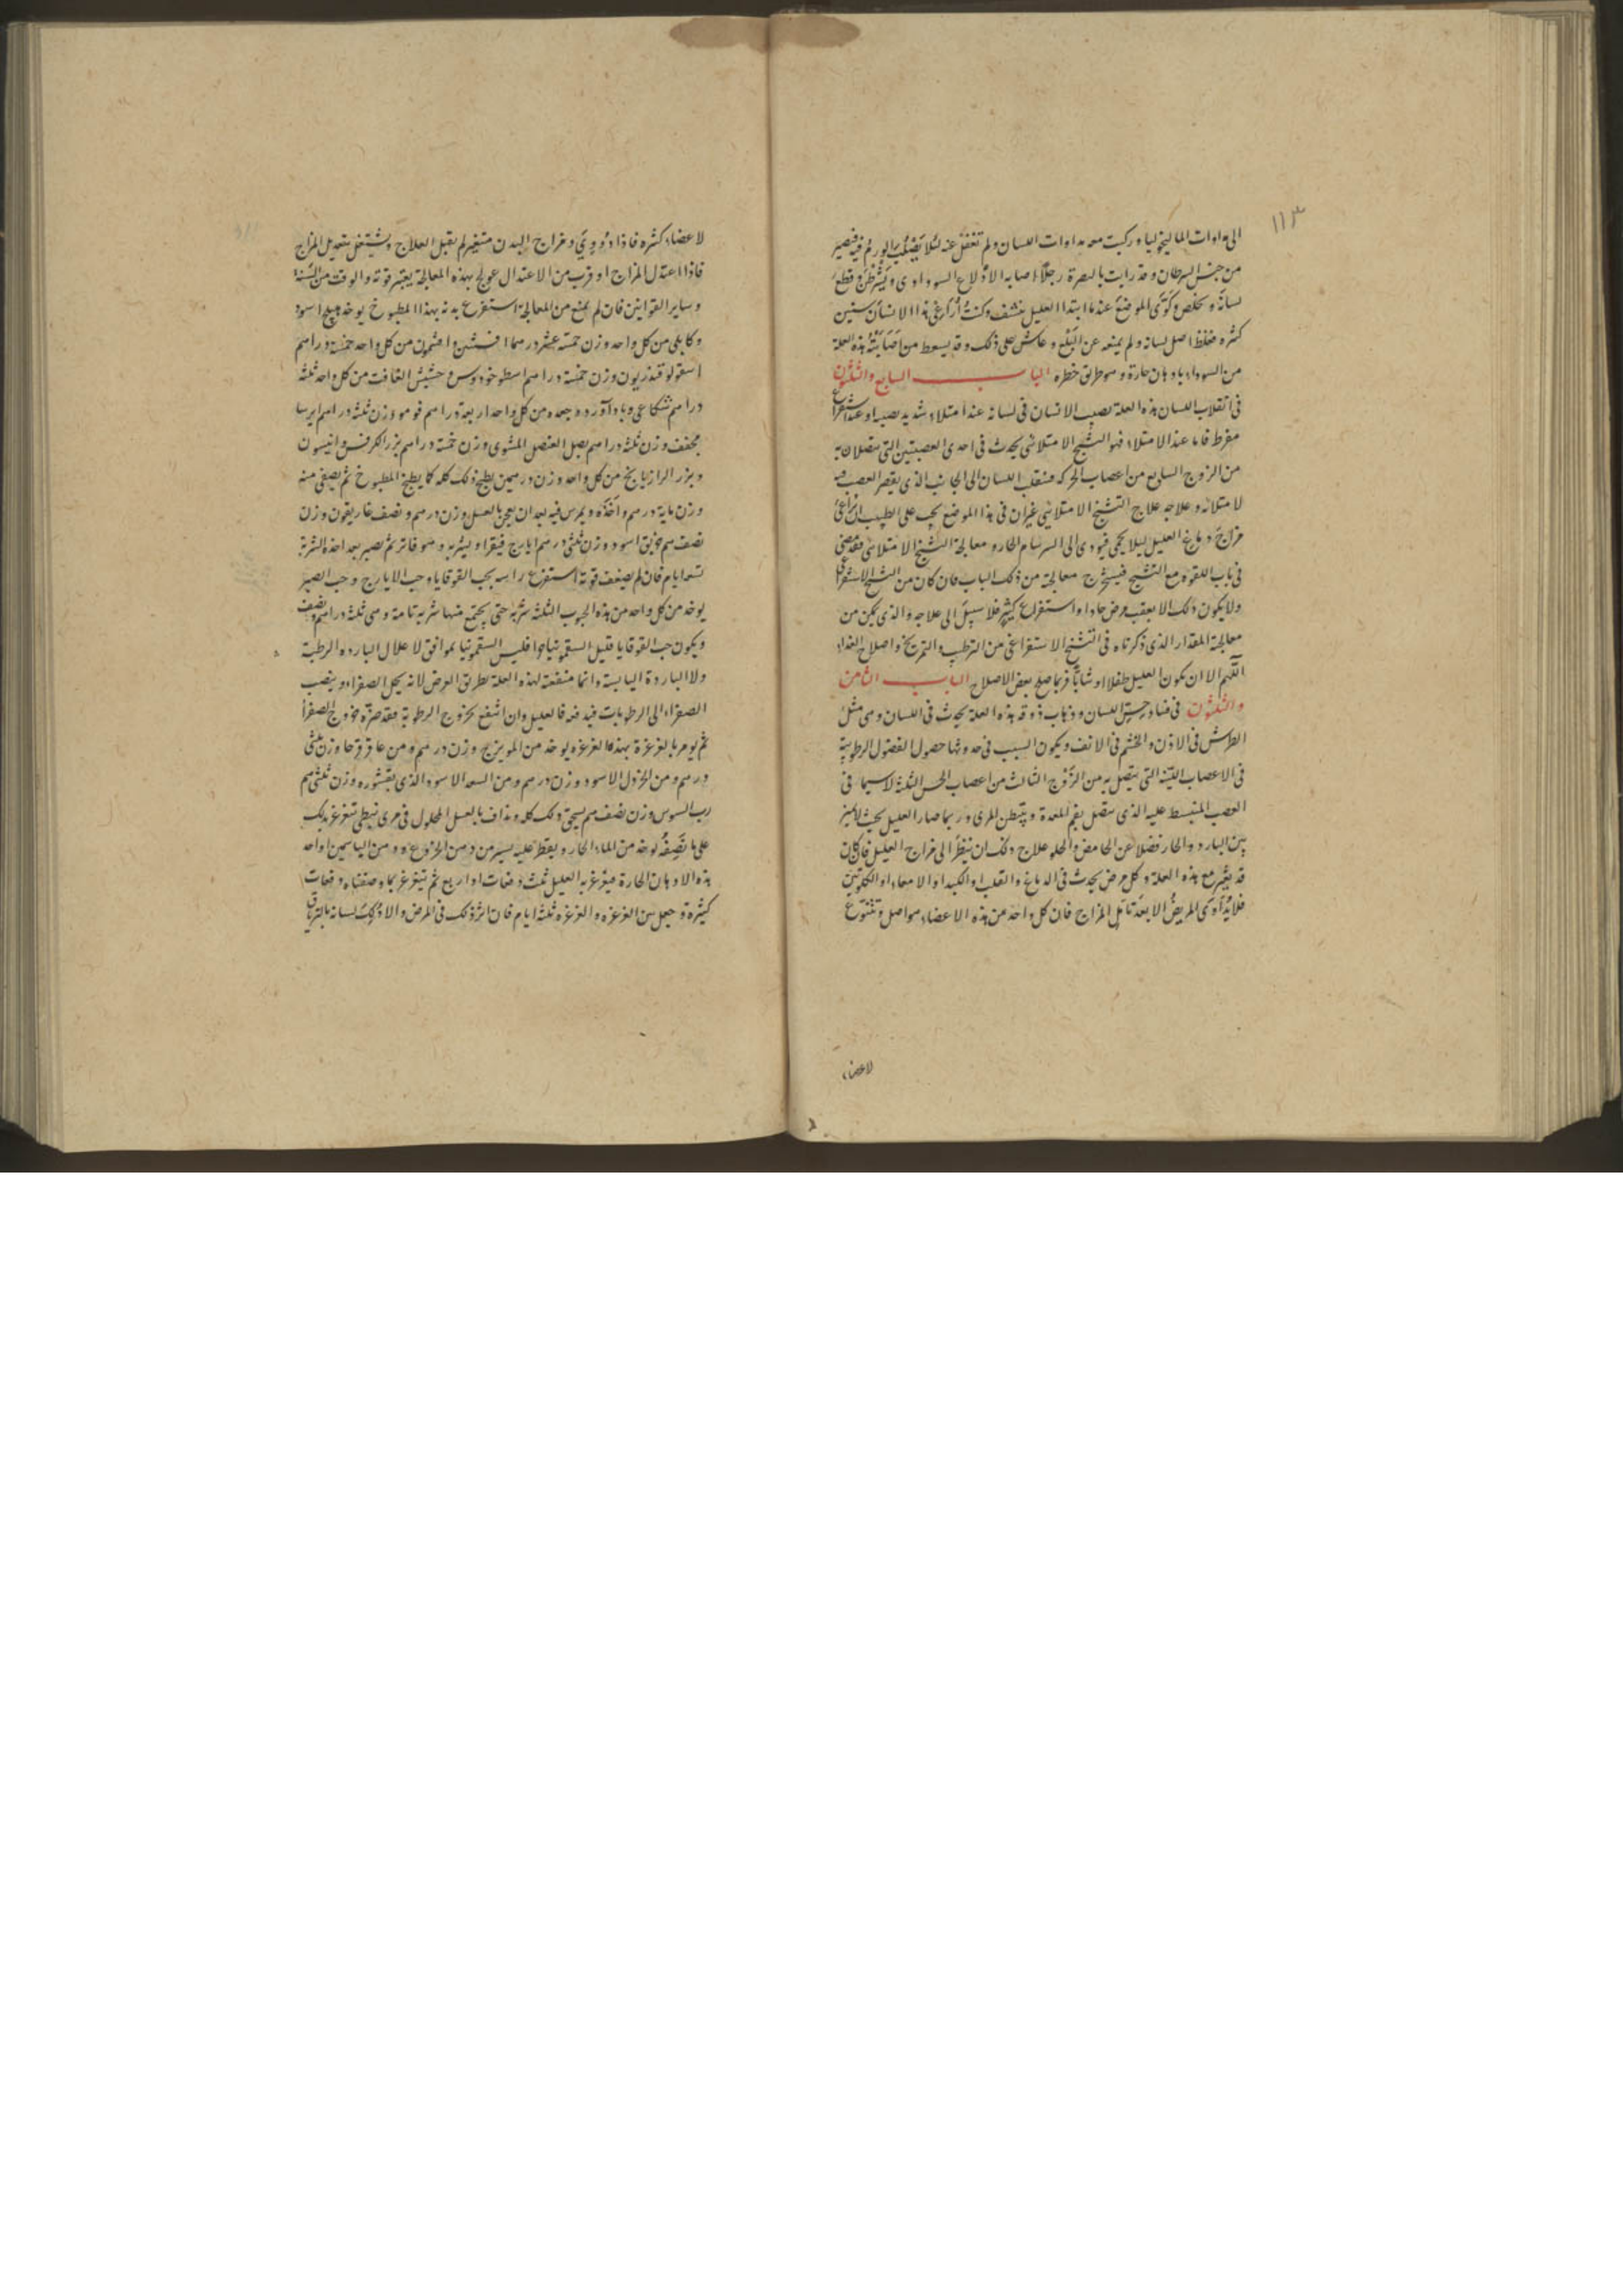 ١١٣
الى مداوات الماليخوليا وركبت معه مداوات اللسان ولم تغفل عنه لئلا يصلب الورم فيه فيصير
من جنس السرطان وقد رايت بالبصرة رجلا اصابه الادلاع السوداوى وقطع
لسانه وتخلص وكوى الموضع عند ما ابتدا العليل وكنت ارا هذا الانسان سنين
كثره فغلظ اصل لسانه ولم يمنعه عن البلع وعاش على ذلك وقد يسعط من اصابته هذه العلة
من السوداء بادهان حارة وهو طريق خطره الباب السابع والثلثون
فى انقلاب اللسان هذه العلة تصيب الانسان فى لسانه عند امتلاء شديد يصيبه او عند استفراغ
مفرط فاما عند الامتلاء فهو التشنج الامتلائى يحدث فى احدى العصبتين التى تتصلان به
من الزوج السابع من اعصاب الحركه فينقلب اللسان الى الجانب الذى يقصر العصب منه
لامتلائه وعلاجه علاج التشنج الامتلائى غير ان فى هذا الموضع يجب على الطبيب ان يراعى
مزاج دماغ العليل ليلا يحمى فيودى الى السرسام الحار و معالجة التشنج الامتلائى فقد مضى
فى باب اللقوه مع التشنج فيستخرج معالجته من ذلك الباب فان كان من التشنج الاستفراغى
ولا يكون ذلك الا بعقب مرض حاد او استفراغ كثير فلا سبيل الى علاجه والذى يمكن من
معالجة المقدار الذى ذكرناه فى التشنج الاستفراغى من الترطيب والتمريخ واصلاح الغذاء
اللهم الا ان يكون العليل طفلا او شابا فربما صلح بعض الاصلاح الباب الثامن
والثلثون فى فساد حس اللسان وذهاب ذوقه هذه العلة تحدث فى اللسان وهى مثل
الطرش فى الاذن والخشم فى الانف ويكون السبب فى حدوثها حصول الفضول الرطوبية
فى الاعصاب اللينه التى تتصل به من الزوج الثالث من اعصاب الحس الثلثة لاسيما فى
العصب المنبسط عليه الذى يتصل بفم المعدة ويتبطن المرى وربما صار العليل بحيث لا يميز
بين البارد والحار فضلا عن الحامض والحلو علاج ذلك ان تنظر الى مزاج العليل فان كان
قد تغير مع هذه العلة وكل مرض يحدث فى الدماغ والقلب او الكبد او الامعاء او الكلوتين
فلا يداوى المريض الا بعد تامل المزاج فان كل واحد من هذه الاعضاء مواصل وتتنوع
لاعضاء
لاعضاء كثره فاذا دووى و مزاج البدن متغير لم يقبل العلاج ويشتغل بتعديل المزاج
فاذا اعتدل المزاج او قرب من الاعتدال عولج بهذه المعالجة يعتبر قوته والوقت من السنة
وساير القوانين فان لم يمنع من المعالجة استفرغ بدنه بهذا المطبوخ يوخذ هليلج اسود
وكابلى من كل واحد وزن خمسة عشر درهما افسنتين وافثيمون من كل واحد خمسة دراهم
اسقولوقندريون وزن خمسة دراهم اسطوخودوس وحشيش الغافت من كل واحد ثلثه
دراهم شكاعى وباداورد وجعده من كل واحد اربعة دراهم فوه وزن ثلثه دراهم ايرسا
مجفف وزن ثلثة دراهم بصل العنصل المشوى وزن خمسة دراهم بزر الكرفس وانيسون
وبزر الرازيانج من كل واحد وزن درهمين يطبخ ذلك كله كما يطبخ المطبوخ ثم يصفى منه
وزن مايه درهم واحده ويمرس فيه بعد ان يعجن بالعسل وزن درهم ونصف غاريقون وزن
نصف درهم خربق اسود وزن ثلثى درهم ايارج فيقرا ويشربه وهو فاتر ثم يصبر بعد اخذه الشربة
تسعة ايام فان لم تضعف قوته استفرغ راسه بحب القوقايا وحب الايارج وحب الصبر
يوخذ من كل واحد من هذه الحبوب الثلثه شربة حتى يجتمع منها شربه تامة وهى ثلثه دراهم ونصف
ويكون حب القوقايا قليل السقمونيا فليس السقمونيا بموافق لاعلال البارده الرطبة
ولا الباردة اليابسة وانما منفعته لهذه العلة بطريق العرض لانه يحل الصفراء وينصب
الصفراء الى الرطوبات فيدفعه فالعليل وان انتفع بخروج الرطوبة فقد ضره خروج الصفرا
ثم يومر بالغرغرة بهذه الغرغره يوخذ من المويزج وزن درهم ومن عاقرقرحا وزن ثلثى
درهم ومن الخردل الاسود وزن درهم ومن السعد الاسود الذى بقشوره وزن ثلثى درهم
رب السوس وزن نصف درهم يسحق ذلك كله ويداف بالعسل المحلول فى مرى نبطى يتغرغر بذلك
على ما نصفه يوخذ من الماء الحار ويقطر عليه يسير من دهن الخروع ومن الياسمين واحد
هذه الادهان الحارة فيتغرغر به العليل ثلث دفعات او اربع ثم يتغرغر بما وصفناه دفعات
كثيرة وجعل بين الغرغره والغرغره ثلثة ايام فان اثر ذلك فى المرض والا دلك لسانه بالترياق